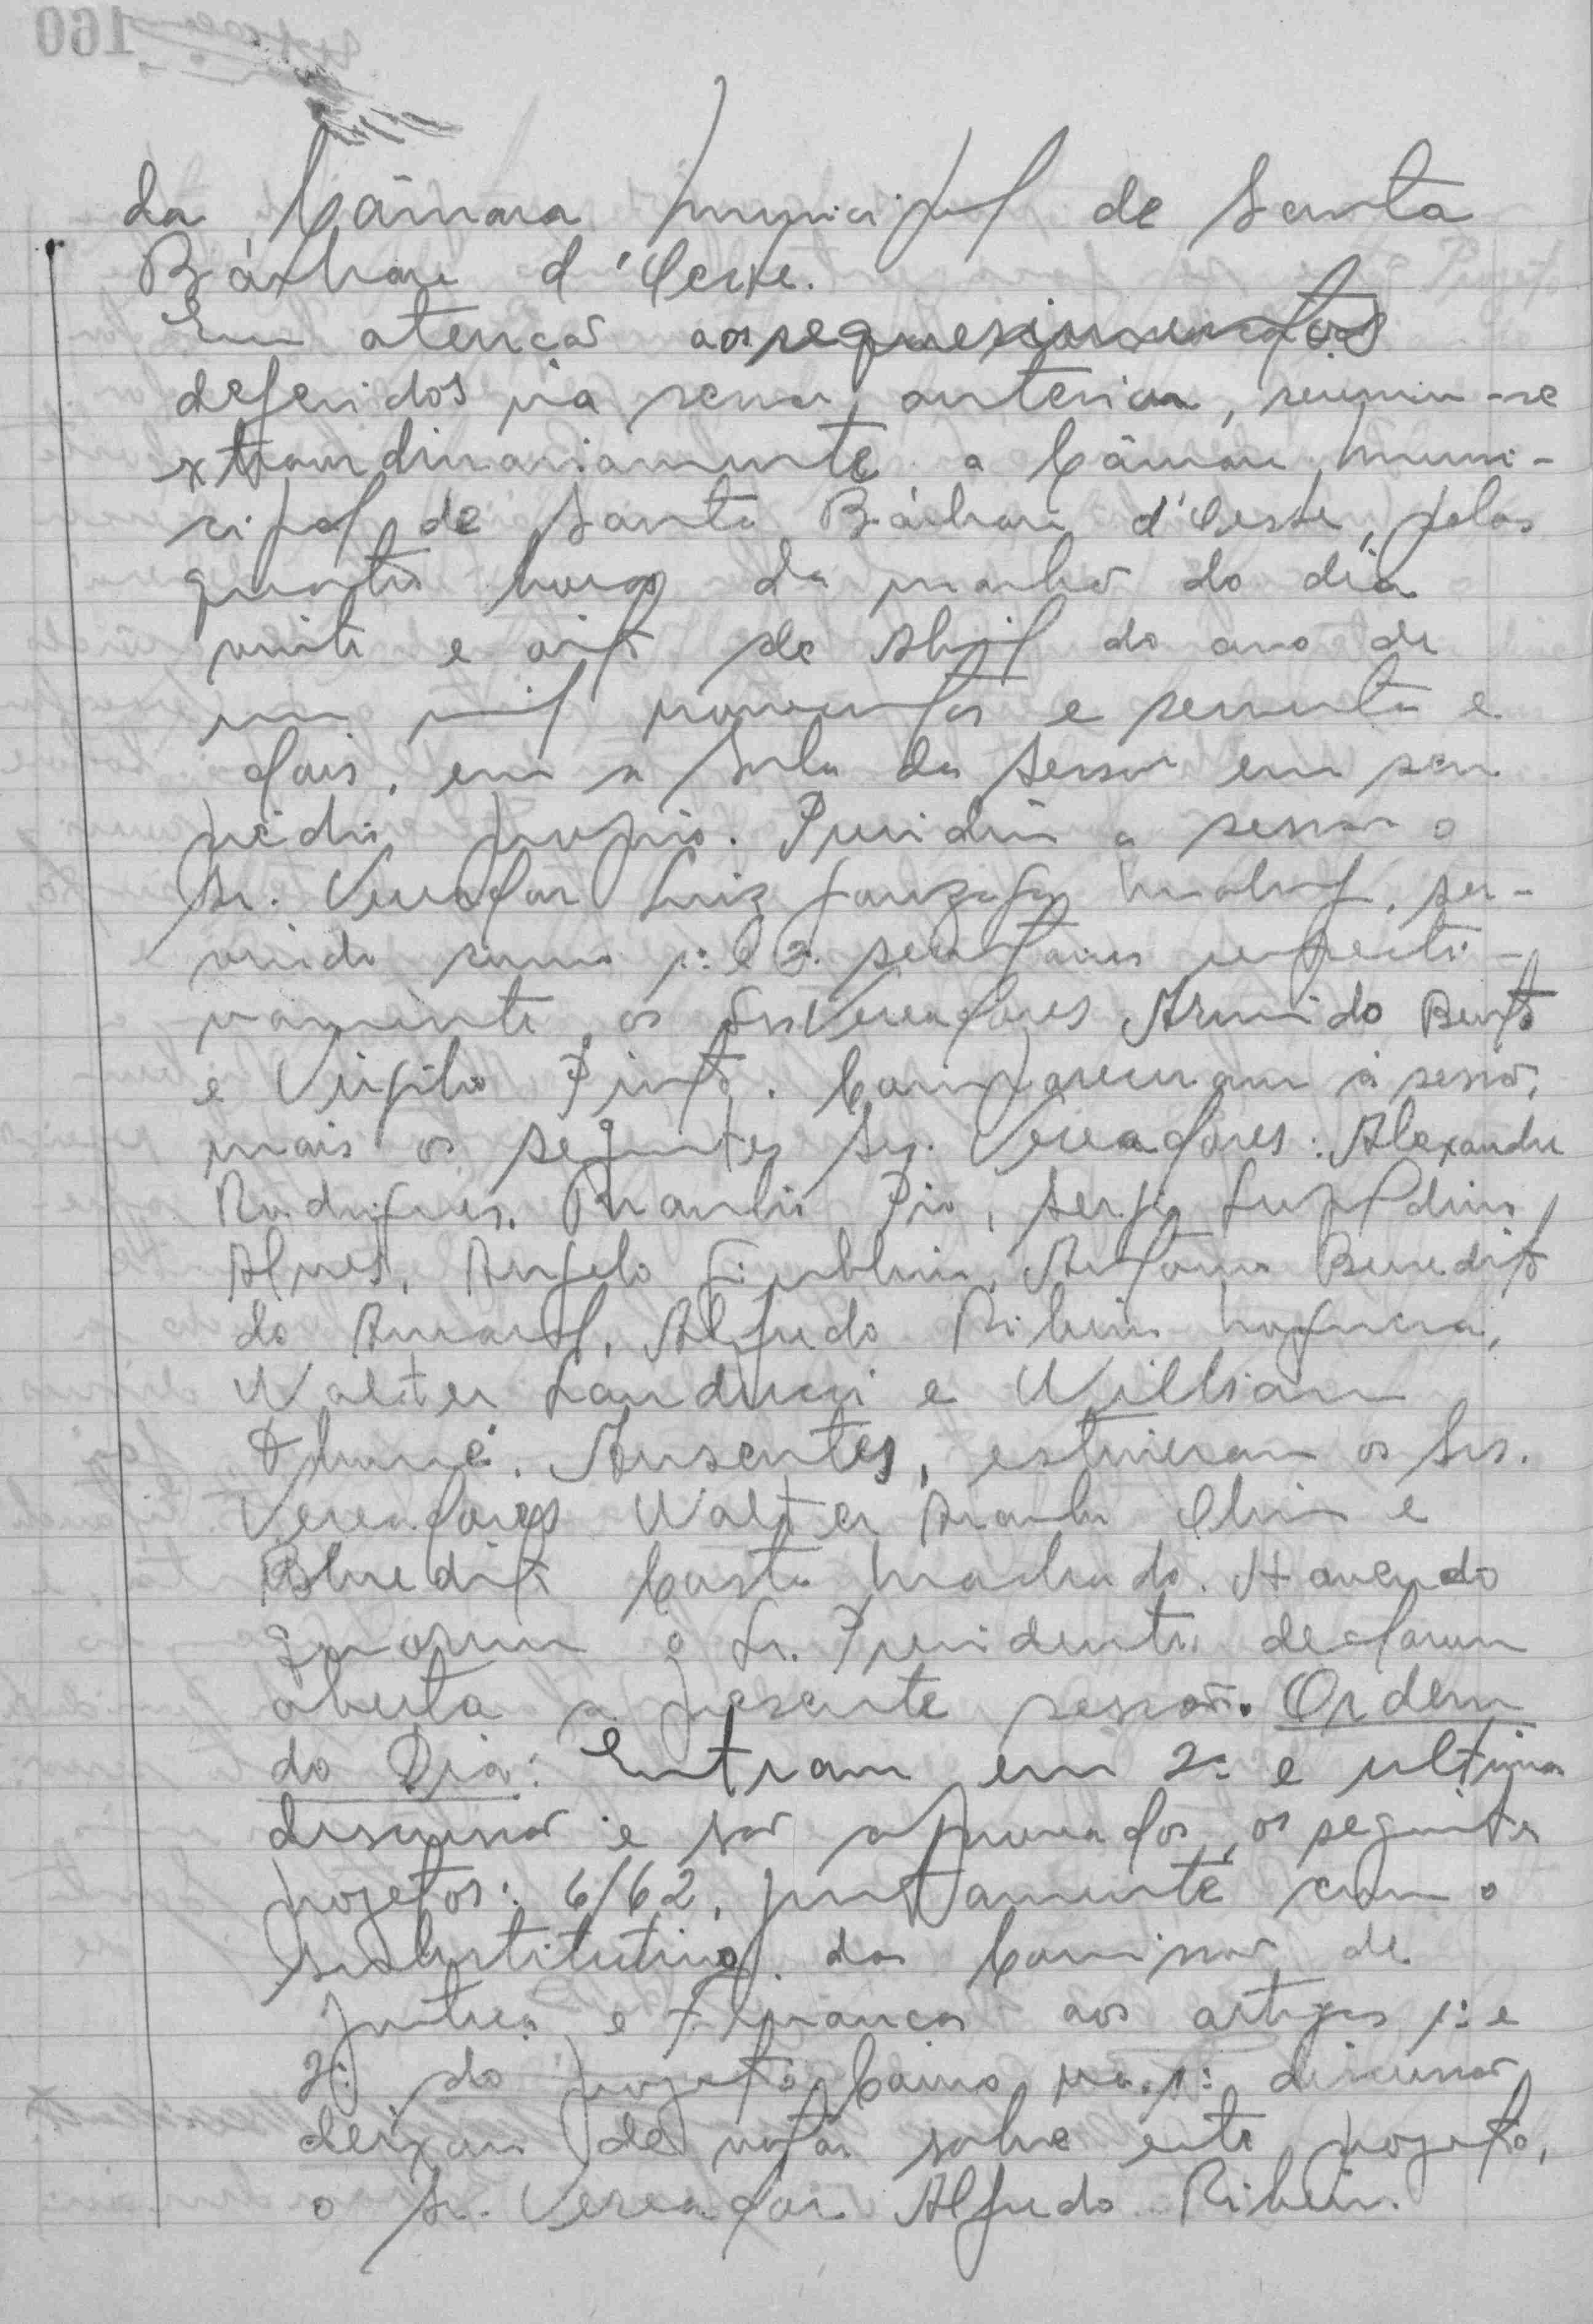 160
da Câmara Municipal de Santa
Bárbara d'Oeste.
Em atenção aos requerimentos
deferidos na sessão anterior, reuniu-se
extraordinariamente a Câmara Muni-
cipal de Santa Bárbara d'Oeste, pelas
quatro horas da manhã do dia
vinte e oito de Abril do ano de
um mil novecentos e sessenta e
dois, em a Sala da Sessão em seu
prédio próprio. Presidiu a sessão o
Sr. Vereador Luiz Gonzaga Maluf, ser-
vindo como 1º e 2º secretarios respecti-
vamente os Srs Vereadores Armindo Bento
e Virgilio Pinto. Compareceram à sessão,
mais os seguintes Srs. Vereadores: Alexandre
Rodrigues, Braulio Pio, Sergio Leopoldino
Alves, Angelo Giubbina, Antonio Benedito
do Amaral, Alfredo Ribeiro Nogueira,
Walter Landucci e William
. Ausentes, estiveram os Srs.
Vereadores Walter Arauho e
Benedito Costa Machado. Havendo
quorum o Sr. Presidente declarou
aberta a presente sessão. Ordem
do Dia: Entram em 2ª e ultima
discussão e são aprovados, os seguintes
projetos: 6/62, juntamente com o
substitutivo da Comissão de
Justiça e Finanças aos artigos 1º e
2º do projeto. Como na 1ª discussão
deixou de votar sobre este projeto,
o Sr. Vereador Alfredo Ribeiro.